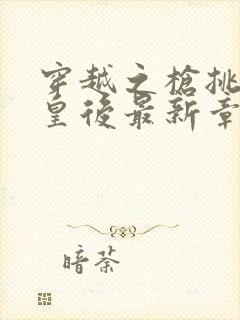 穿越之槍挑
皇後最新章
暗荼